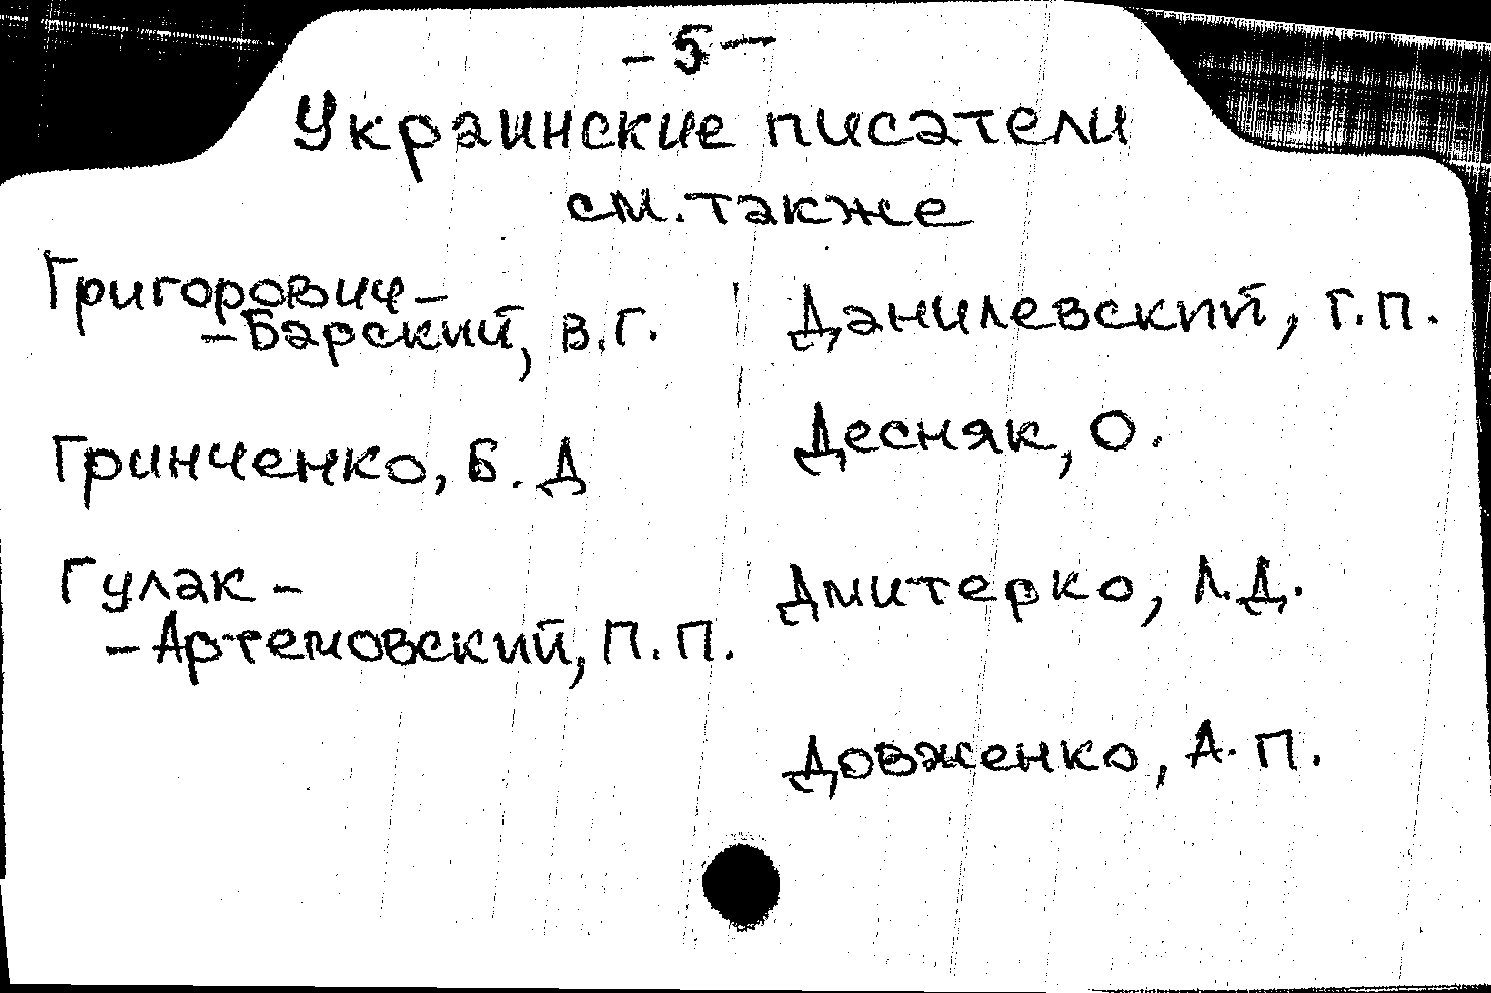 - 5 -
Украинские писатели
см. также
Григорович-
-Барский, В.Г.
Гринченко, Б. Д
Гулак-
-Артемовский, П.П.
Данилевский, Г.П.
Десняк, О.
Дмитерко, Л.Д.
Довженко, А.П.